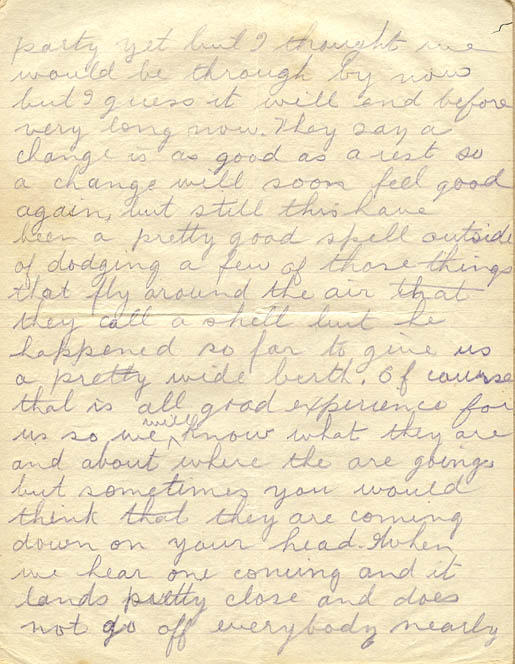 party yet but I thought we
would be through by now
but I guess it will end before
very long now. They say a
change is as good as a rest so
a change will soon feel good
again, but still this have
been a pretty good spell outside
of dodging a few of those things
that fly around the air that
they call a shell but he
happened so far to give us
a pretty wide berth. Of course
that is all good experience for
us so we will know what they are
and about where the are going
but sometimes you would
think that they are coming
down on your head. When
we hear one coming and it
lands pretty close and does
not go off everybody nearly